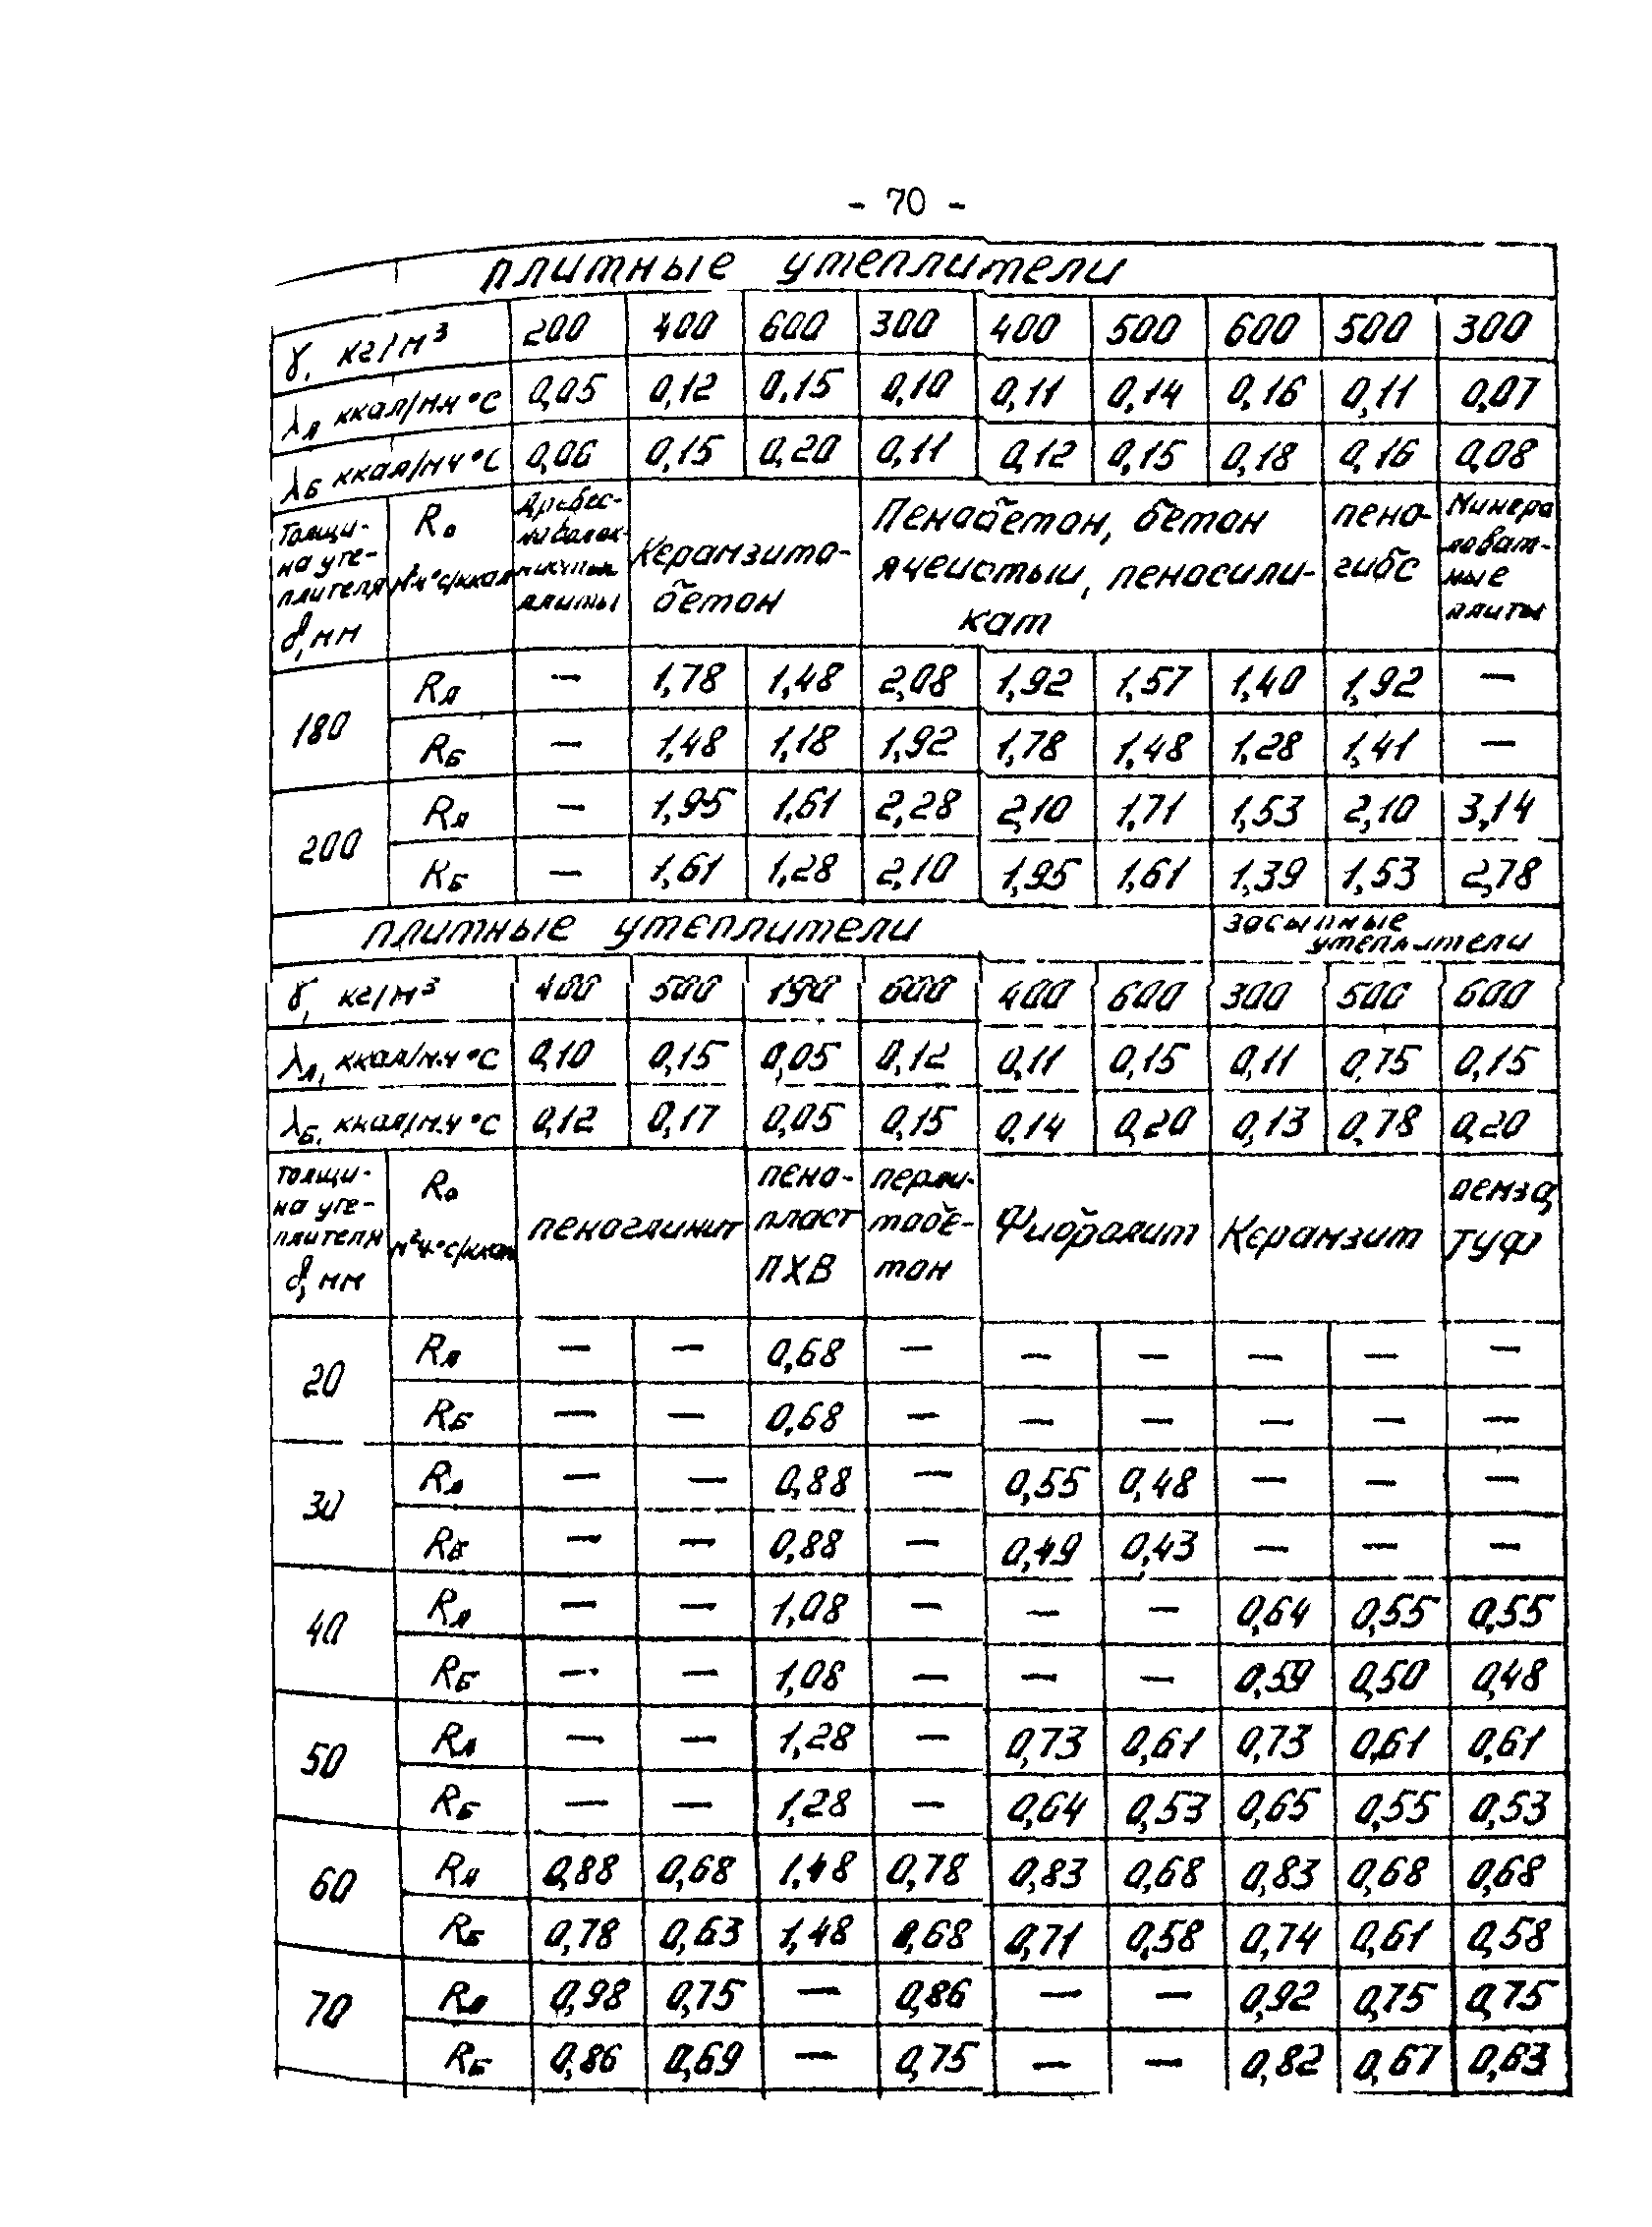 - 70 -
плитные утеплители
γ, кг/м³ 200 400 600 300 400 500 600 500 300
λА ккал/м.ч °С 0,05 0,12 0,15 0,10 0,11 0,14 0,16 0,11 0,07
λБ ккал/м.ч °С 0,06 0,15 0,20 0,11 0,12 0,15 0,18 0,16 0,08
Толщи-
на уте-
плителя
δ, мм
R₀
м²ч°с/ккал
Древес-
плиты
Керамзито-
бетон
Пенобетон, бетон
ячеистый, пеносили-
кат
пено-
гибс
Минера
ловат-
ные
плиты
180 RА — 1,78 1,48 2,08 1,92 1,57 1,40 1,92 —
RБ — 1,48 1,18 1,92 1,78 1,48 1,28 1,41 —
200 RА — 1,95 1,61 2,28 2,10 1,71 1,53 2,10 3,14
RБ — 1,61 1,28 2,10 1,95 1,61 1,39 1,53 2,78
плитные утеплители
засыпные
утеплители
γ, кг/м³ 400 500 190 600 400 600 300 500 600
λА, ккал/м.ч °С 0,10 0,15 0,05 0,12 0,11 0,15 0,11 0,75 0,15
λБ, ккал/м.ч °С 0,12 0,17 0,05 0,15 0,14 0,20 0,13 0,78 0,20
толщи-
на уте-
плителя
δ, мм
R₀
м²ч°с/ккал
пеноглинит
пено-
пласт
ПХВ
перли-
тобе-
тон
Фибролит
Керамзит
пемза,
туф
20 RА — — 0,68 — — — — — —
RБ — — 0,68 — — — — — —
30 RА — — 0,88 — 0,55 0,48 — — —
RБ — — 0,88 — 0,49 0,43 — — —
40 RА — — 1,08 — — — 0,64 0,55 0,55
RБ — — 1,08 — — — 0,59 0,50 0,48
50 RА — — 1,28 — 0,73 0,61 0,73 0,61 0,61
RБ — — 1,28 — 0,64 0,53 0,65 0,55 0,53
60 RА 0,88 0,68 1,48 0,78 0,83 0,68 0,83 0,68 0,68
RБ 0,78 0,63 1,48 0,68 0,71 0,58 0,74 0,61 0,58
70 RА 0,98 0,75 — 0,86 — — 0,92 0,75 0,75
RБ 0,86 0,69 — 0,75 — — 0,82 0,67 0,63